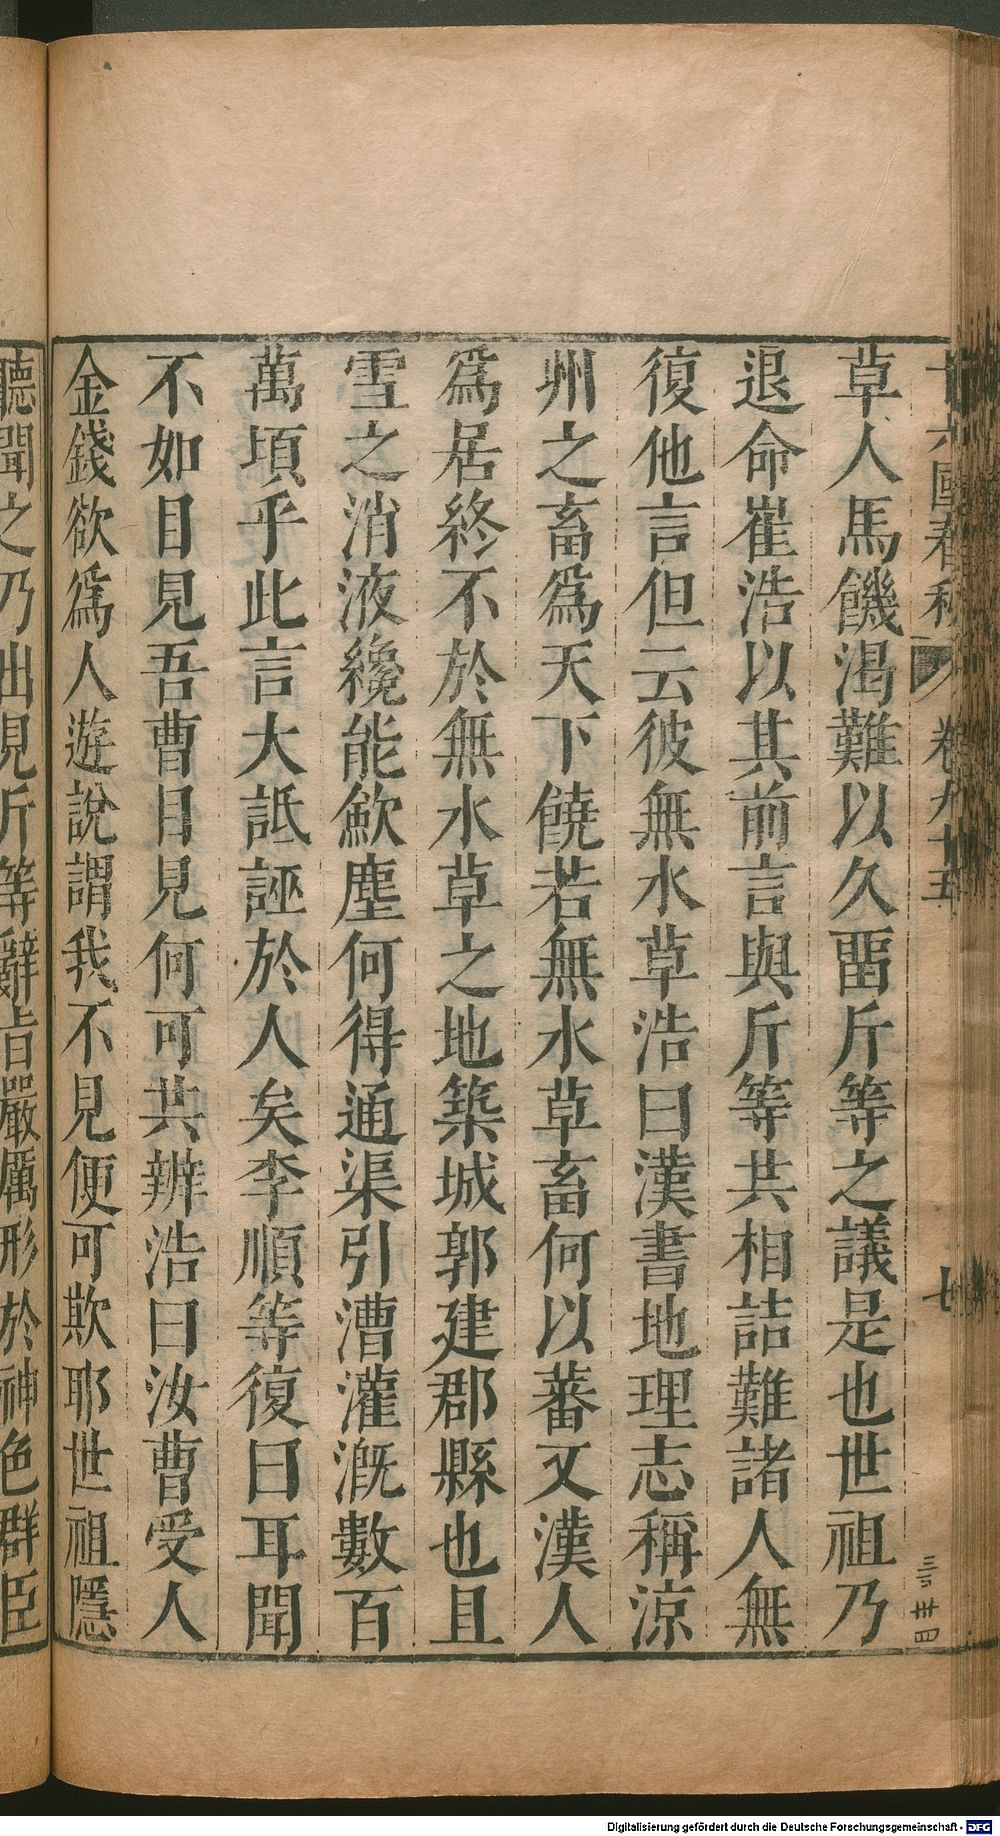 十六國春秋 卷九十五 七
草人馬饑渴難以久畱斤等之議是也世祖乃
退命崔浩以其前言與斤等共相詰難諸人無
復他言但云彼無水草浩曰漢書地理志稱涼
州之畜爲天下饒若無水草畜何以蕃又漢人
爲居終不於無水草之地築城郭建郡縣也且
雪之消液纔能斂塵何得通渠引漕灌溉數百
萬頃乎此言大詆誣於人矣李順等復曰耳聞
不如目見吾曹目見何可共辨浩曰汝曹受人
金錢欲爲人遊說謂我不見便可欺耶世祖隱
聽聞之乃出見斤等辭旨嚴厲形於神色群臣
Digitalisierung gefördert durch die Deutsche Forschungsgemeinschaft - DFG